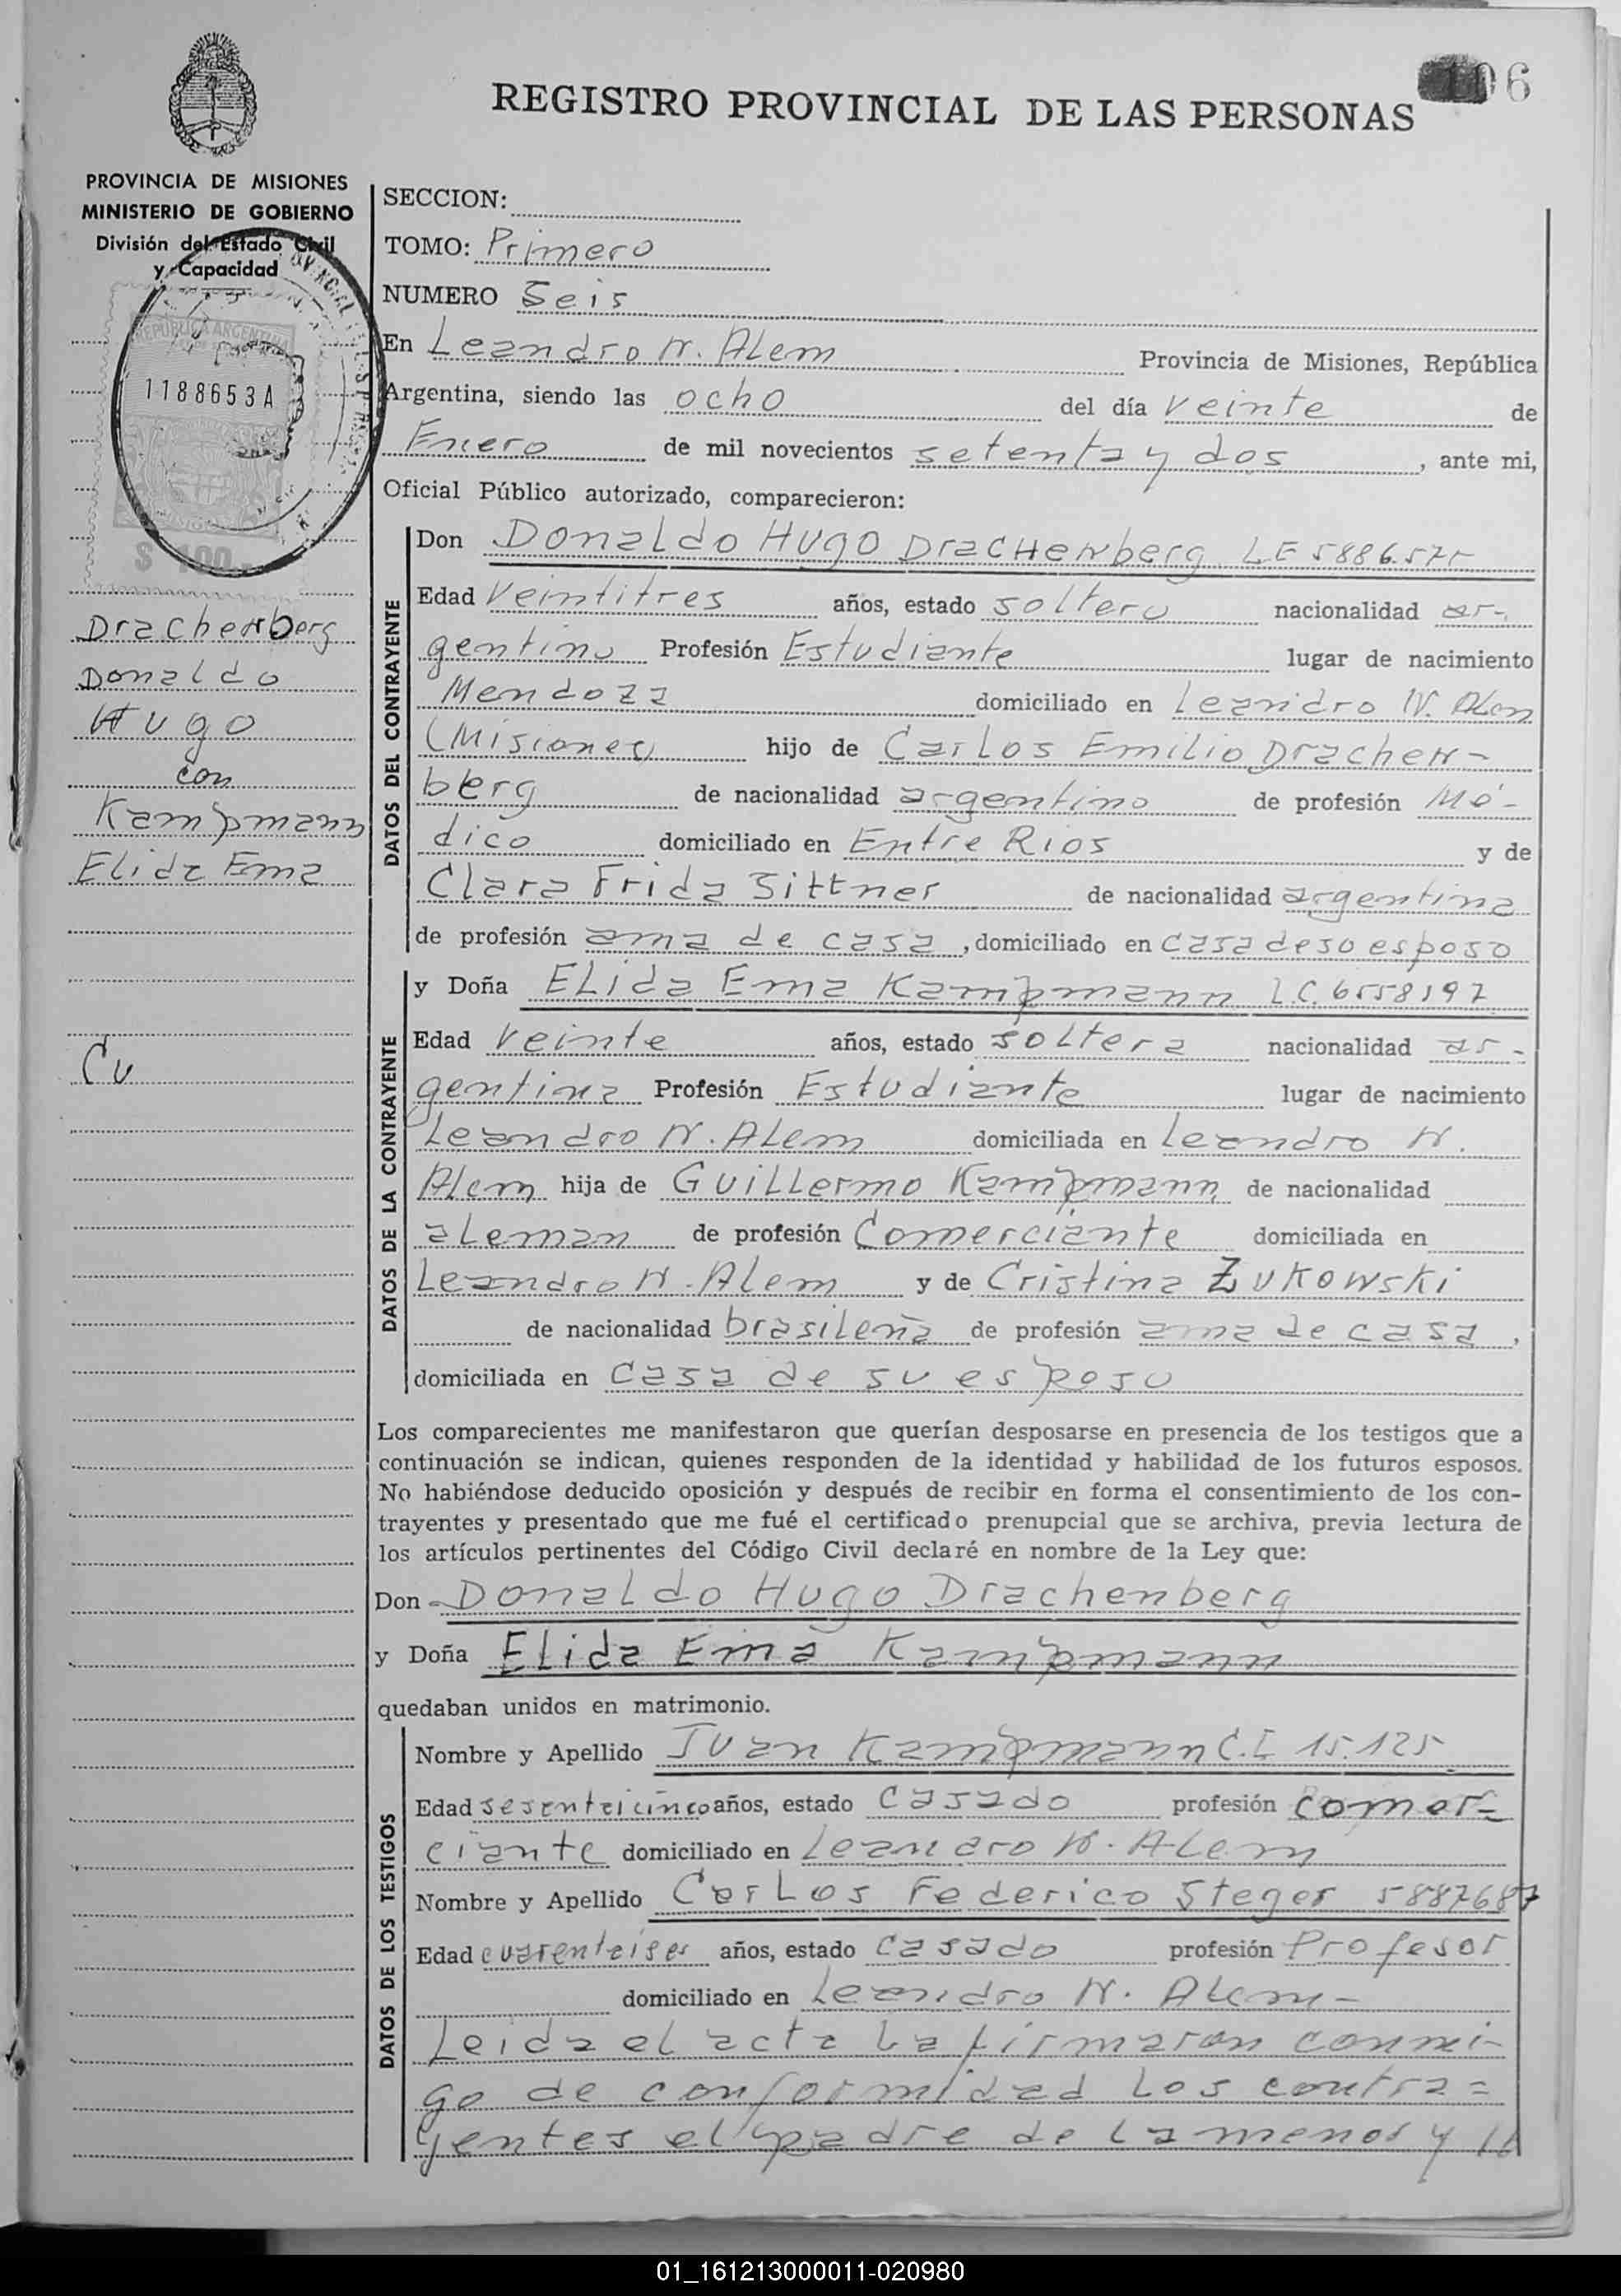 106
REGISTRO PROVINCIAL DE LAS PERSONAS
PROVINCIA DE MISIONES
MINISTERIO DE GOBIERNO
División del Estado Civil
y Capacidad
REPUBLICA ARGENTINA
1188653A
$ 100.-
Drachenberg
Donaldo
Hugo
con
Kampmann
Elida Ema
Cu
SECCION:
TOMO: Primero
NUMERO Seis
En Leandro N. Alem Provincia de Misiones, República
Argentina, siendo las ocho del día veinte de
Enero de mil novecientos setenta y dos, ante mi,
Oficial Público autorizado, comparecieron:
DATOS DEL CONTRAYENTE
Don Donaldo Hugo Drachenberg LE 5886.575
Edad Veintitres años, estado soltero nacionalidad ar-
gentino Profesión Estudiante lugar de nacimiento
Mendoza domiciliado en Leandro N. Alem
(Misiones) hijo de Carlos Emilio Drachen-
berg de nacionalidad argentino de profesión Mé-
dico domiciliado en Entre Rios y de
Clara Frida Sittner de nacionalidad argentina
de profesión ama de casa, domiciliado en casa de su esposo
DATOS DE LA CONTRAYENTE
y Doña Elida Ema Kampmann L.C. 6558197
Edad veinte años, estado soltera nacionalidad ar-
gentina Profesión Estudiante lugar de nacimiento
Leandro N. Alem domiciliada en Leandro N.
Alem hija de Guillermo Kampmann de nacionalidad
aleman de profesión Comerciante domiciliada en
Leandro N. Alem y de Cristina Zukowski
de nacionalidad brasileña de profesión ama de casa,
domiciliada en casa de su esposo
Los comparecientes me manifestaron que querían desposarse en presencia de los testigos que a
continuación se indican, quienes responden de la identidad y habilidad de los futuros esposos.
No habiéndose deducido oposición y después de recibir en forma el consentimiento de los con-
trayentes y presentado que me fué el certificado prenupcial que se archiva, previa lectura de
los artículos pertinentes del Código Civil declaré en nombre de la Ley que:
Don Donaldo Hugo Drachenberg
y Doña Elida Ema Kampmann
quedaban unidos en matrimonio.
DATOS DE LOS TESTIGOS
Nombre y Apellido Juan Kampmann C.I 15.125
Edad sesentaicinco años, estado casado profesión comer-
ciante domiciliado en Leandro N. Alem
Nombre y Apellido Carlos Federico Steger 5887687
Edad cuarentaiseis años, estado casado profesión Profesor
domiciliado en Leandro N. Alem-
Leida el acta la firmaron conmi-
go de conformidad los contra=
yentes el padre de la menor y
01_161213000011-020980